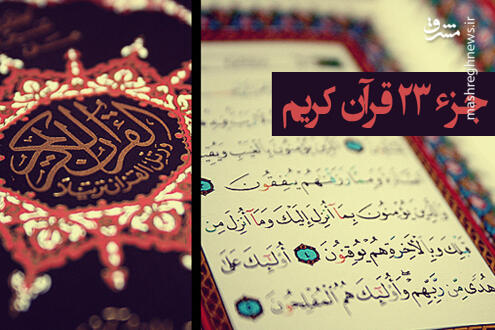 مشرق
mashreghnews.ir
جزء ۲۳ قرآن کریم
القرآن الكريم
ورتل القرآن ترتيلا
رَزَقْنَٰهُمْ يُنفِقُونَ
وَالَّذِينَ يُؤْمِنُونَ بِمَا أُنزِلَ إِلَيْكَ وَمَا أُنزِلَ مِن
قَبْلِكَ وَبِالْآخِرَةِ هُمْ يُوقِنُونَ ٤ أُولَٰئِكَ عَلَىٰ
هُدًى مِّن رَّبِّهِمْ وَأُولَٰئِكَ هُمُ الْمُفْلِحُونَ